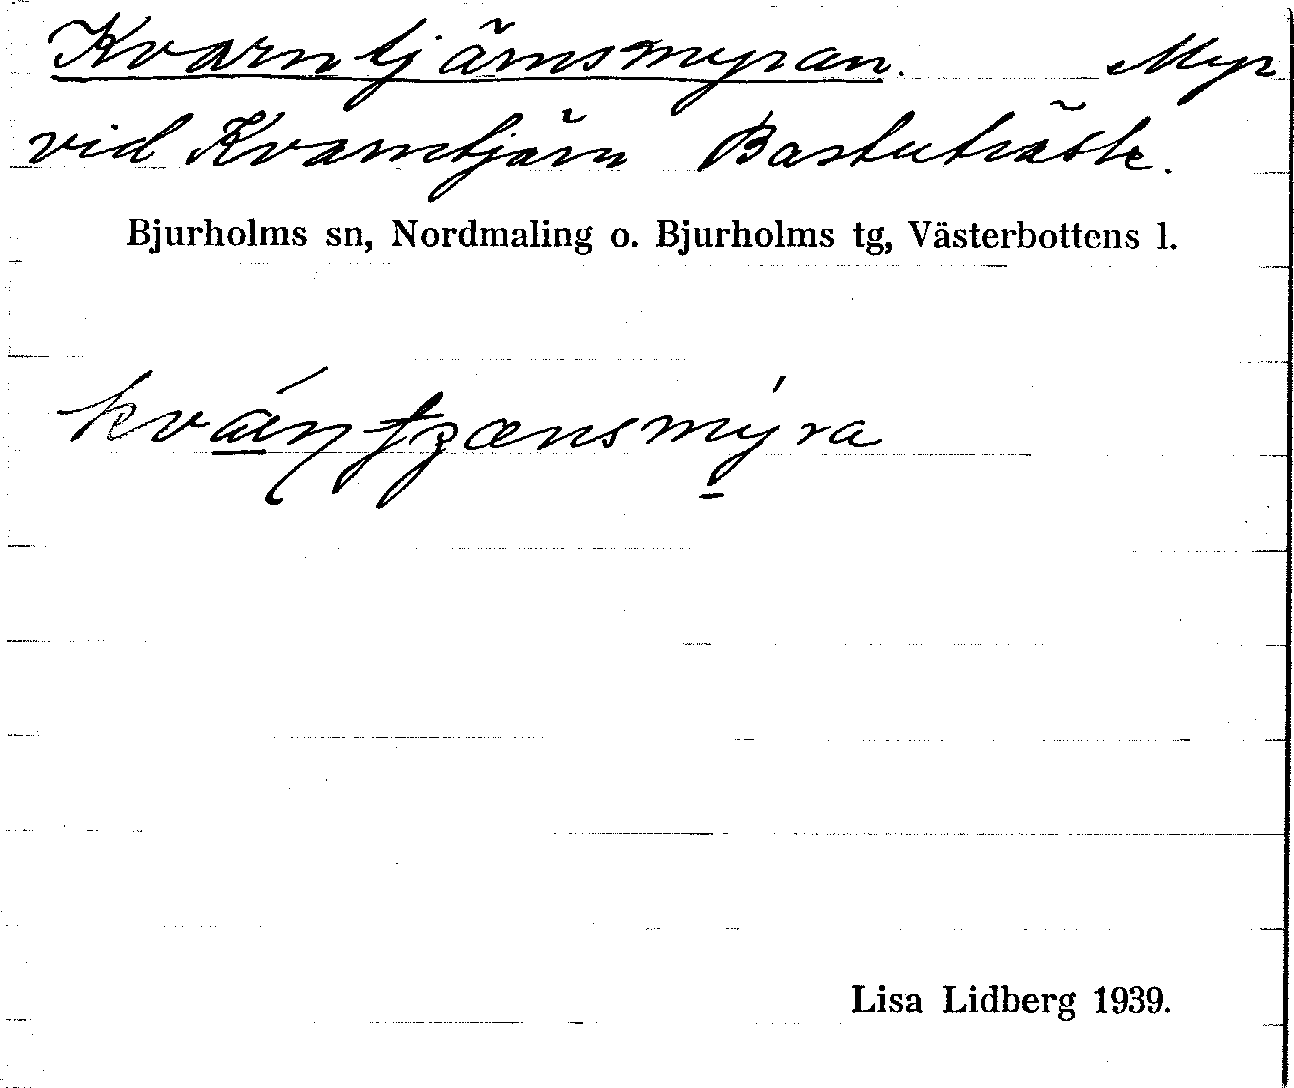 Kvarntjärnsmyran. Myr
vid Kvarntjärn Bastuträsk.
Bjurholms sn, Nordmaling o. Bjurholms tg, Västerbottens l.
Lisa Lidberg 1939.